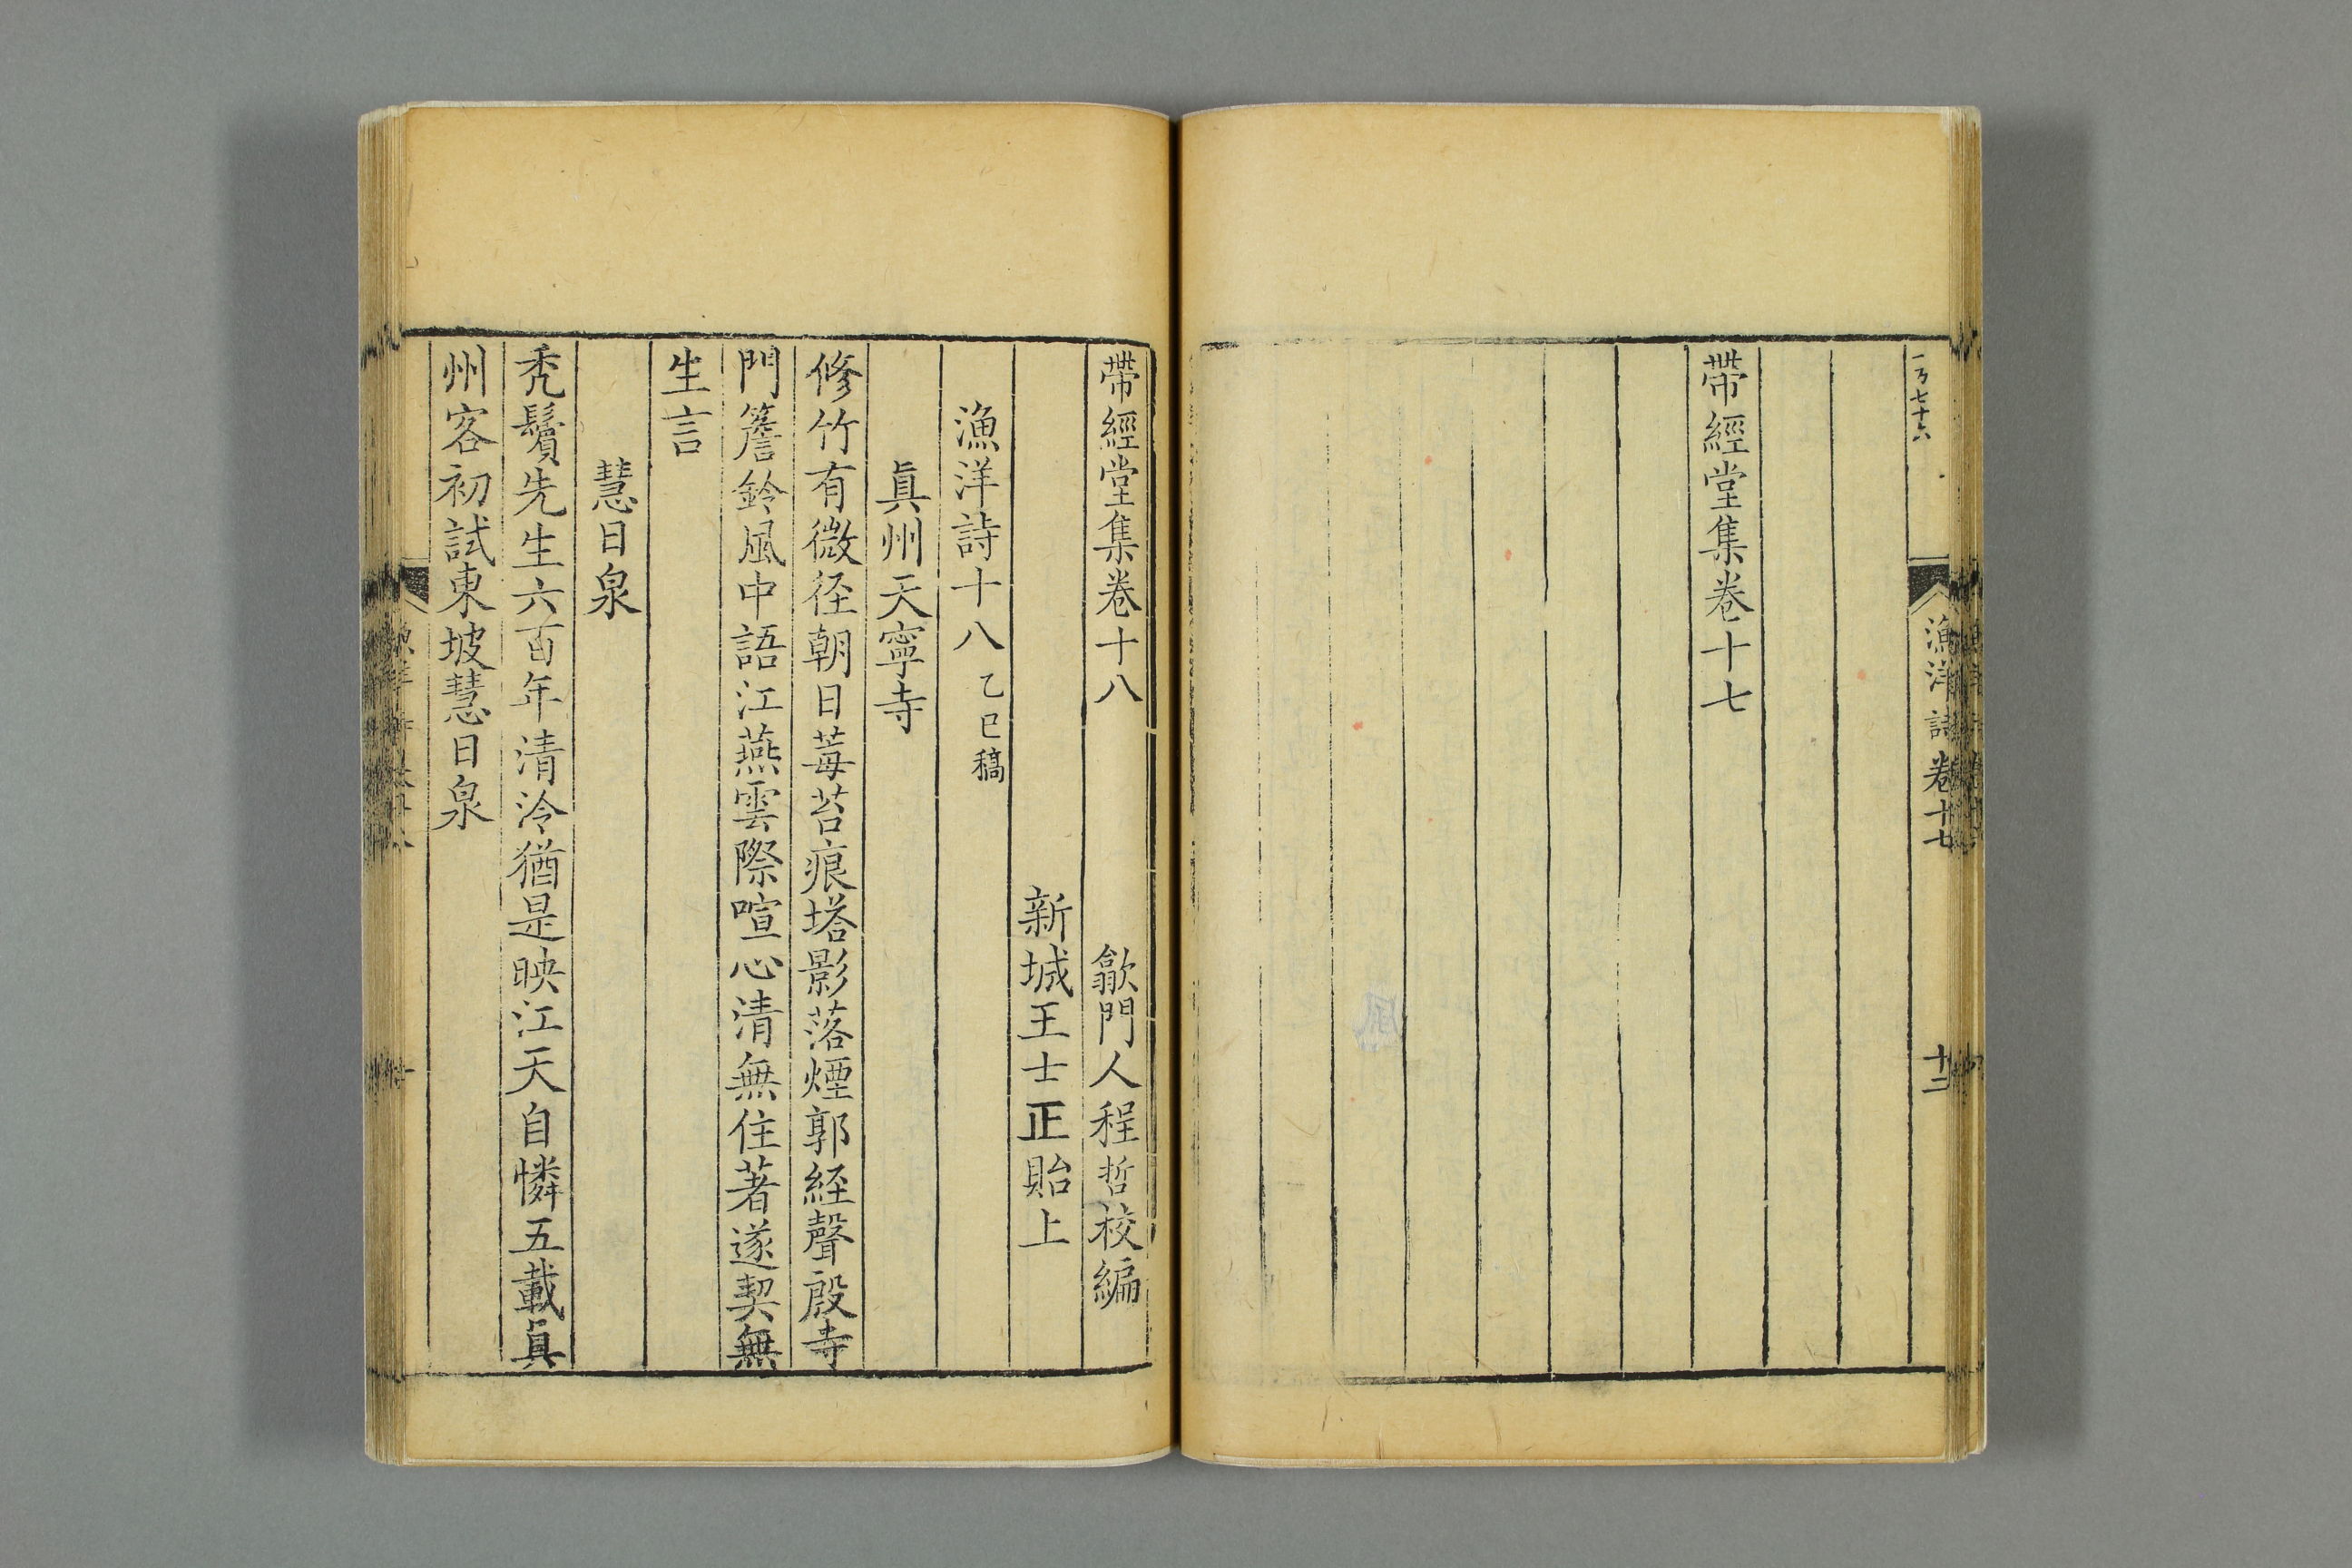 一百七十六
漁洋詩卷十七
十二
帶經堂集卷十七
帶經堂集卷十八
歙門人程哲校編
新城王士正貽上
漁洋詩十八 乙巳稿
眞州天寧寺
修竹有微径朝日莓苔痕塔影落煙郭経聲殷寺
門簷鈴風中語江燕雲際喧心清無住著遂契無
生言
慧日泉
禿鬢先生六百年清泠猶是映江天自憐五載眞
州客初試東坡慧日泉